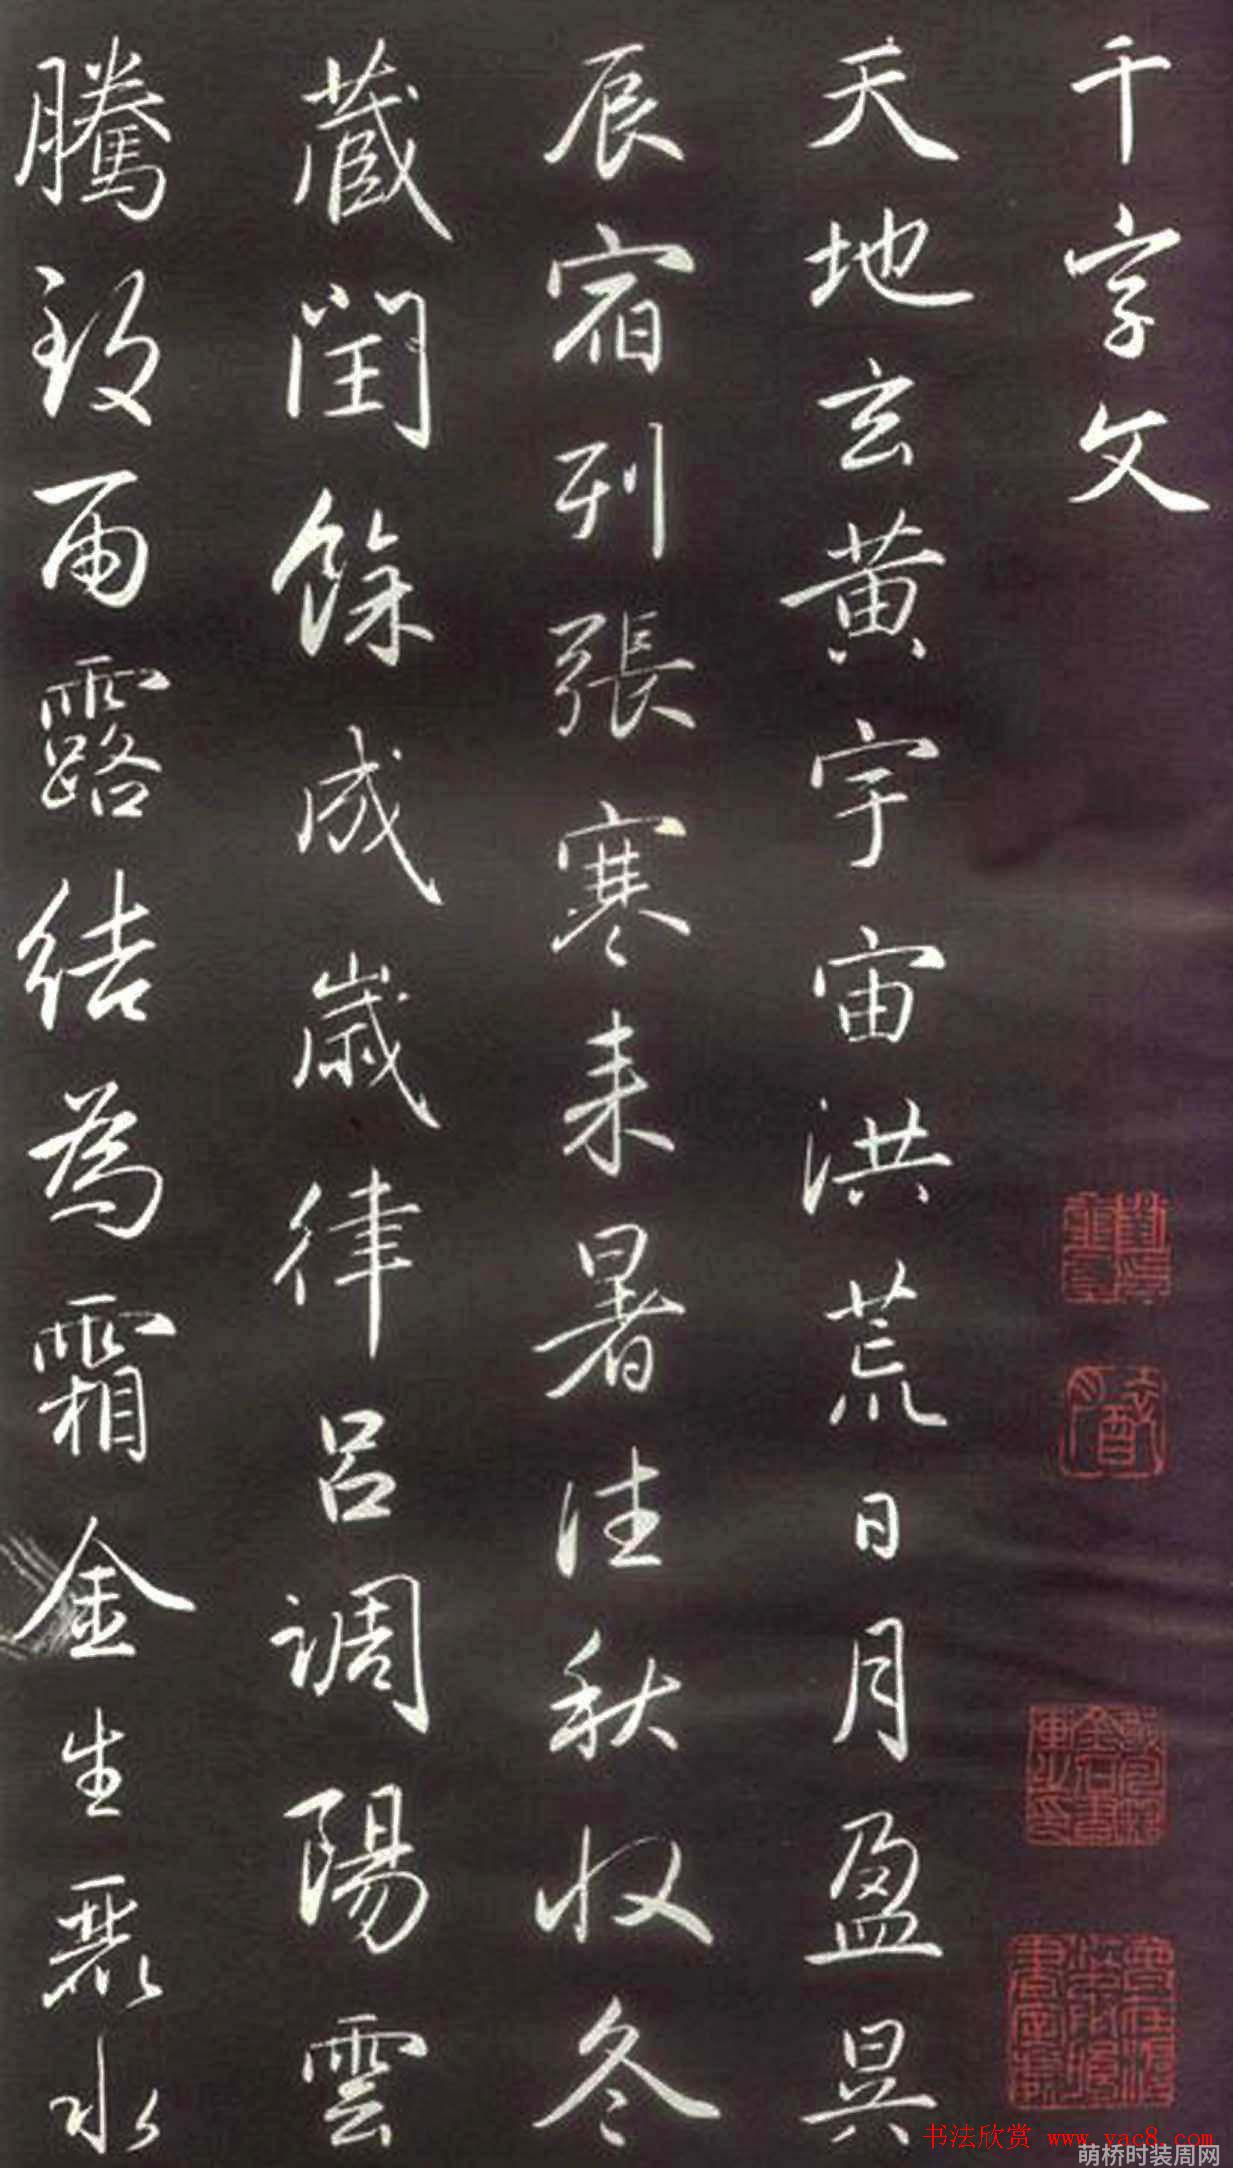 千字文
天地玄黄宇宙洪荒日月盈昃
辰宿列張寒来暑往秋収冬
蔵閏餘成歲律呂調陽雲
騰致雨露結為霜金生麗水
书法欣赏 www.yac8.com
萌桥时装周网